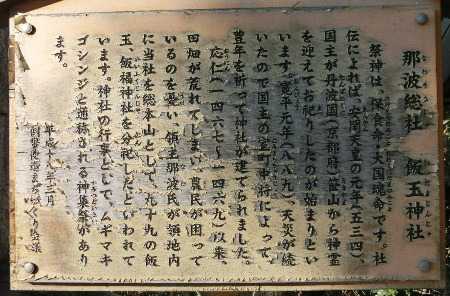 那波総社　飯玉神社
祭神は、保食命・大国魂命です。社
伝によれば、安閑天皇の元年(五三四)、
国主が丹波国(京都府)笹山から神霊
を迎えてお祀りしたのが始まりとい
います。寛平元年(八八九)、天災が続
いたので国主の室町中将によって、
豊年を祈って神社が建てられました。
応仁(一四六七〜一四六九)以来
田畑が荒れてしまい、農民が困って
いるのを憂い、領主那波氏が領地内
に当社を総本山として、九十九の飯
玉、飯福神社を分祀したといわれて
います。神社の行事として、ムギマキ
ゴシンジと通称される神集祭があり
ます。
平成十八年三月